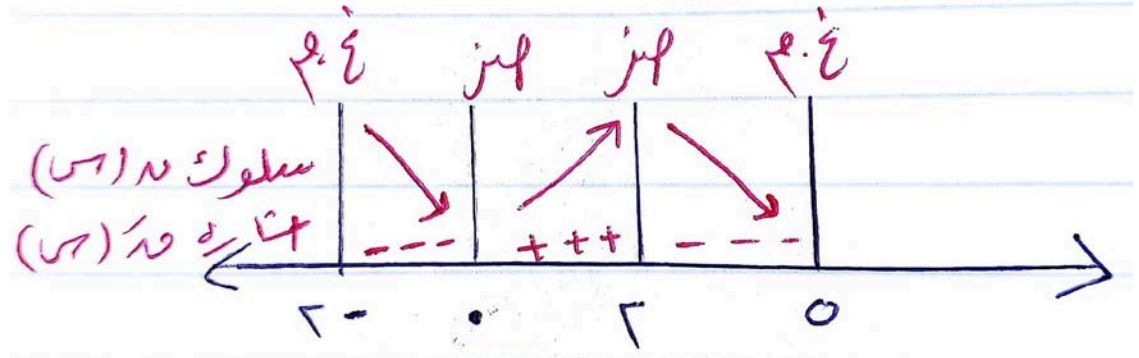 غ.م صفر صفر غ.م
سلوك ق(س)
إشارة قَ(س) - - - + + + - - -
٢- ٠ ٢ ٥